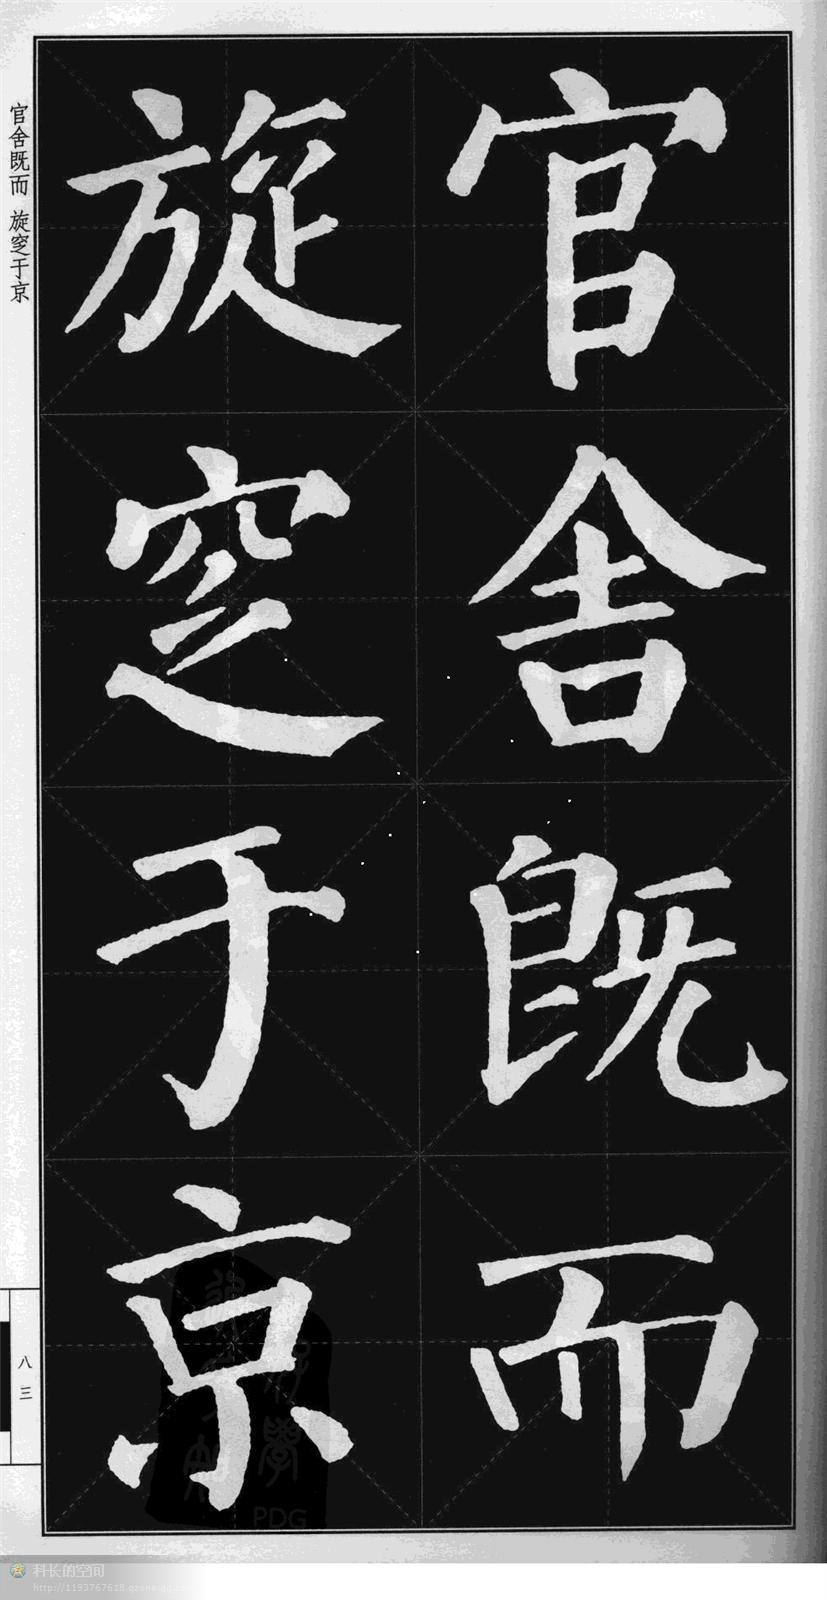 官舍既而
旋窆于京
官舍既而 旋窆于京
八三
PDG
科长的空间
http://1193767618.qzone.qq.com